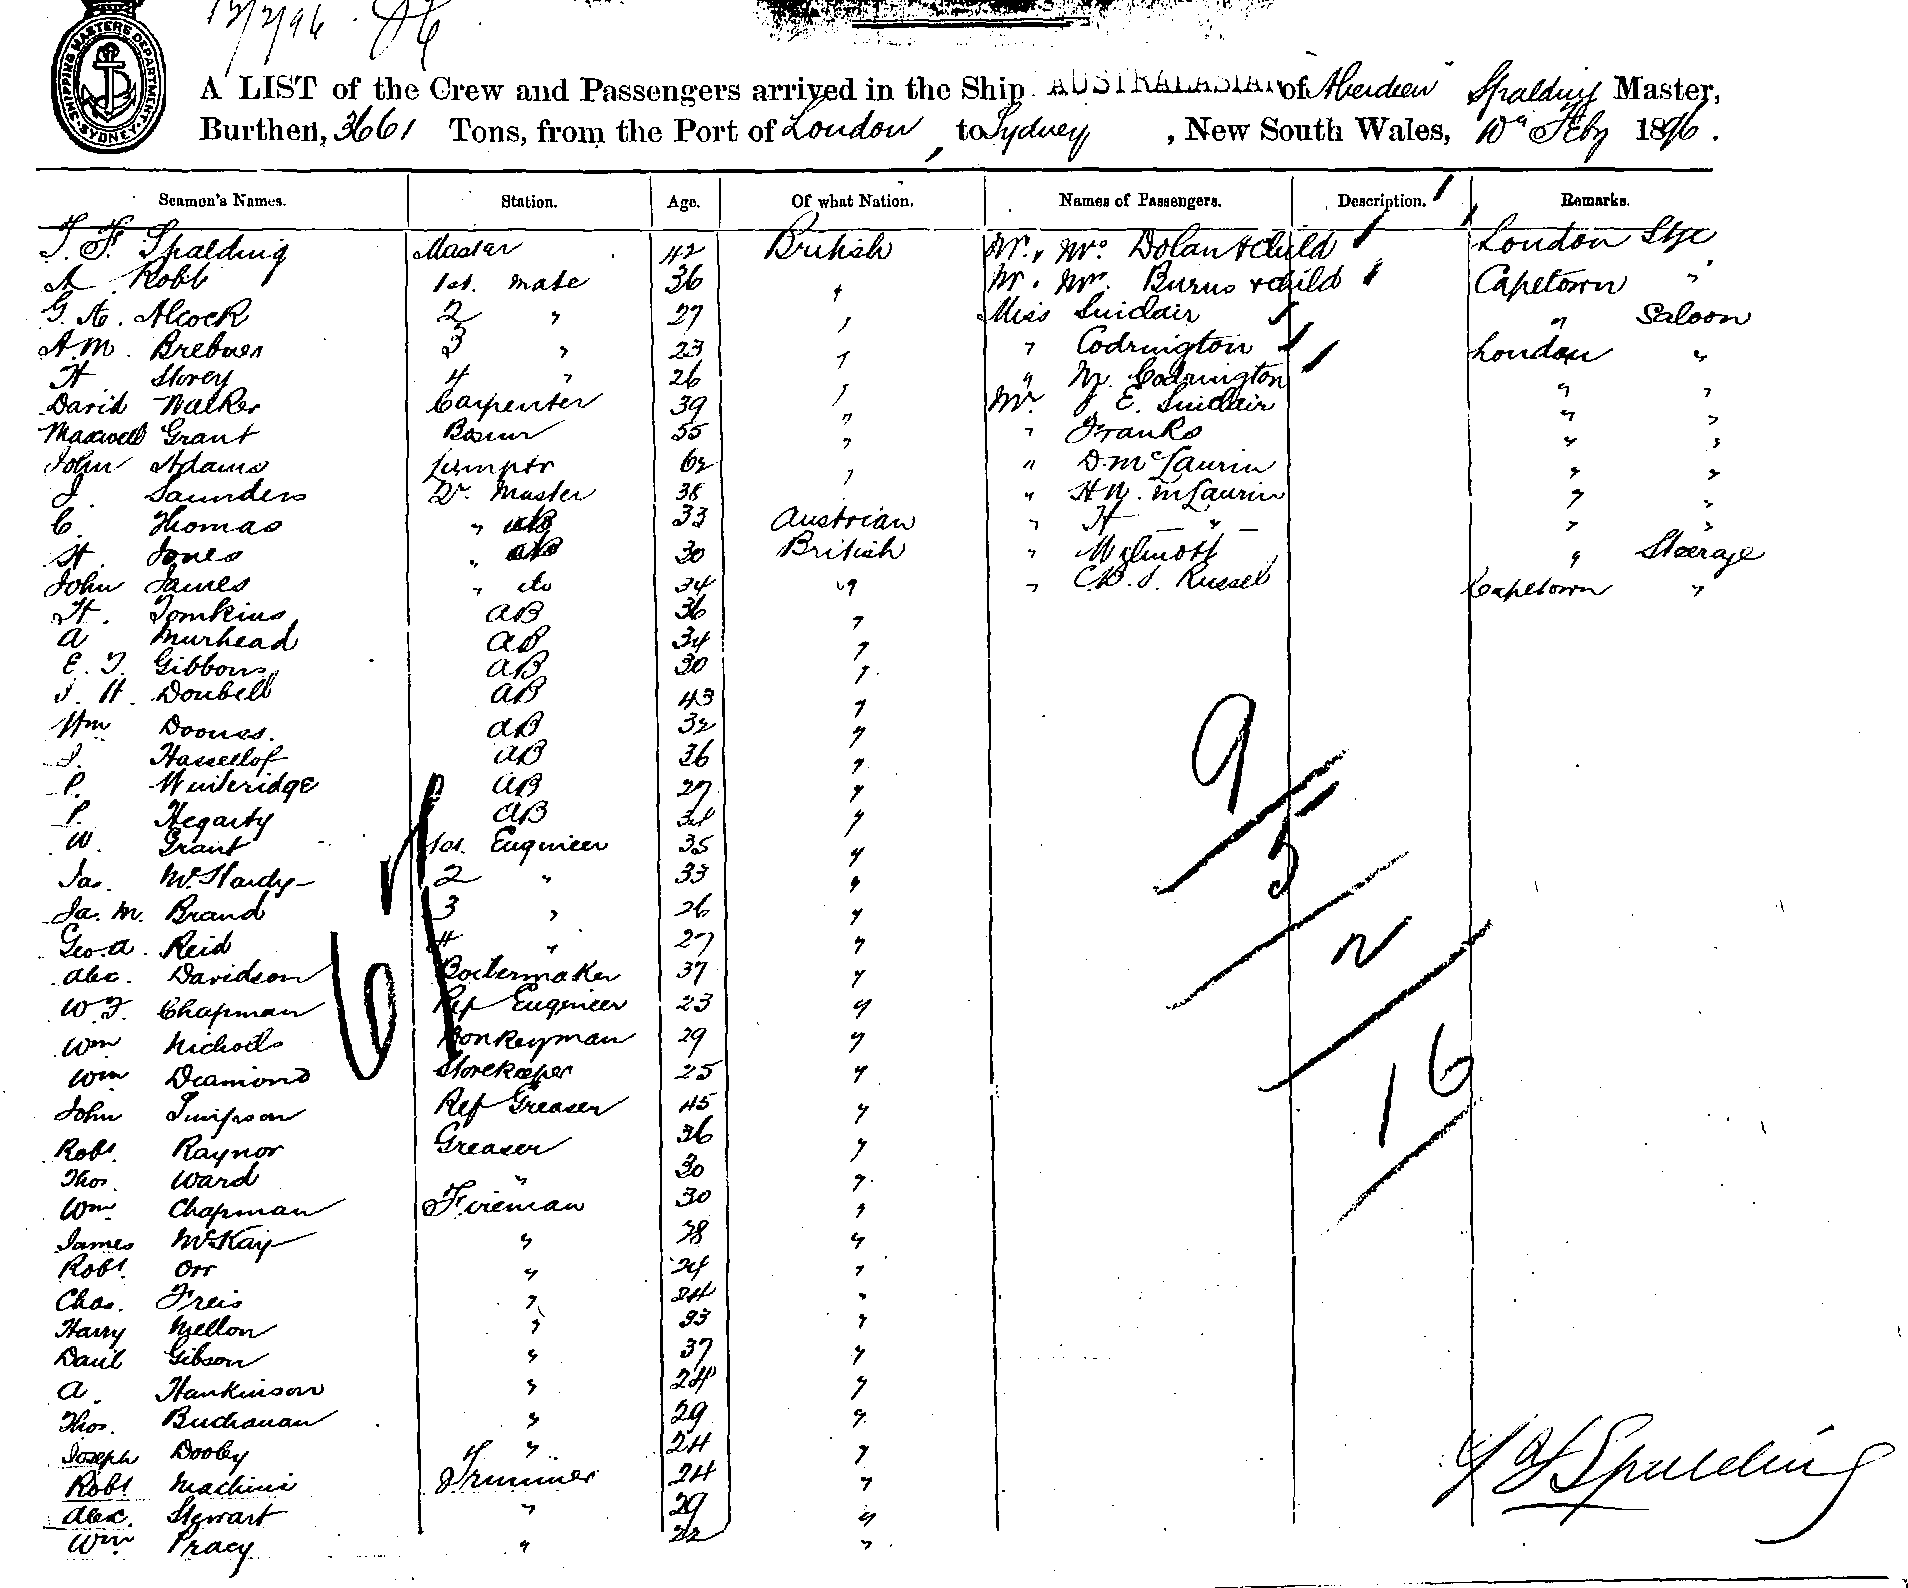 12/2/96
SHIPPING MASTERS DEPARTMENT SYDNEY
A LIST of the Crew and Passengers arrived in the Ship AUSTRALASIAN of Aberdeen Spalding Master,
Burthen, 3661 Tons, from the Port of London, to Sydney, New South Wales, 10th Feby 1896.
Seamen's Names. Station. Age. Of what Nation. Names of Passengers. Description. Remarks.
T. F. Spalding Master 42 British Mr. Mrs Dolan & Child London Stge
A Robb 1st. mate 36 " Mr. Mrs. Burns & child Capetown "
G. A. Alcock 2 " 27 " Miss Sinclair " Saloon
A. M. Brebner 3 " 23 " " Codrington London "
H Storey 4 " 26 " " M. Codrington " "
David Walker Carpenter 39 " Mr. J E. Sinclair " "
Maxwell Grant Bosun 55 " " Franks " "
John Adams Lamptr 62 " " D. McLaurin " "
J. Saunders Qr. Master 38 " " H N. McLaurin " "
C. Thomas " 33 Austrian " H — " — " "
H. Jones " 30 British " " Steerage
John James " do 34 " " C. B. S. Russel Capetown "
H. Tomkins AB 36 "
A Murhead AB 34 "
E. T. Gibbons AB 30 "
J. H. Doubell AB 43 "
Wm AB 32 "
J. Hasselhof AB 36 "
P. Winteridge AB 27 "
P. Hegarty AB 34 "
W. Grant 1st. Engineer 35 "
Ja. McHardy 2 " 33 "
Ja. M. Brand 3 " 26 "
Geo. A. Reid 4 " 27 "
Alex. Davidson Boilermaker 37 "
W. T. Chapman Ref Engineer 23 "
Wm Nichols Donkeyman 29 "
Wm Diamond Storekeeper 25 "
John Simpson Ref Greaser 45 "
Robt. Raynor Greaser 36 "
Thos. Ward " 30 "
Wm Chapman Fireman 30 "
James McKay " 38 "
Robt. Orr " 24 "
Chas. Freis " 24 "
Harry Mellon " 33 "
Danl Gibson " 37 "
A. Hankinson " 24 "
Thos. Buchanan " 29 "
Joseph Dooley " 24 "
Robt Machin Trimmer 24 "
Alex. Stewart " 29 "
Wm Pracy " 22 "
9
5
2
16
61
T F Spalding